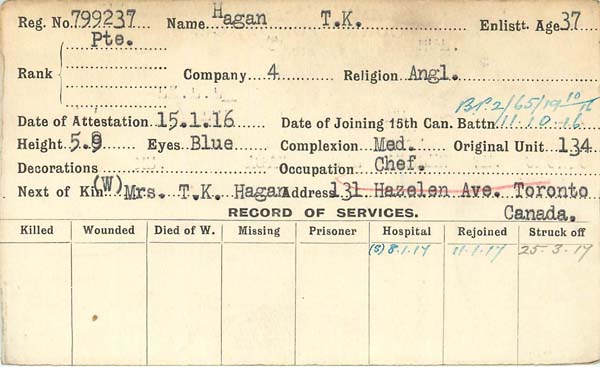 Reg. No. 799237 Name Hagan T.K. Enlistt. Age 37
Pte.
Rank Company 4 Religion Angl.
B.P.2/65/19 10/16
Date of Attestation 15.1.16 Date of Joining 15th Can. Battn. 11.10.16
Height 5.9 Eyes Blue Complexion Med. Original Unit 134
Decorations Occupation Chef.
Next of Kin (W) Mrs. T.K. Hagan Address 131 Hazelen Ave. Toronto
RECORD OF SERVICES. Canada.
Killed Wounded Died of W. Missing Prisoner Hospital Rejoined Struck off
(S) 8.1.17 11.1.17 25.3.17